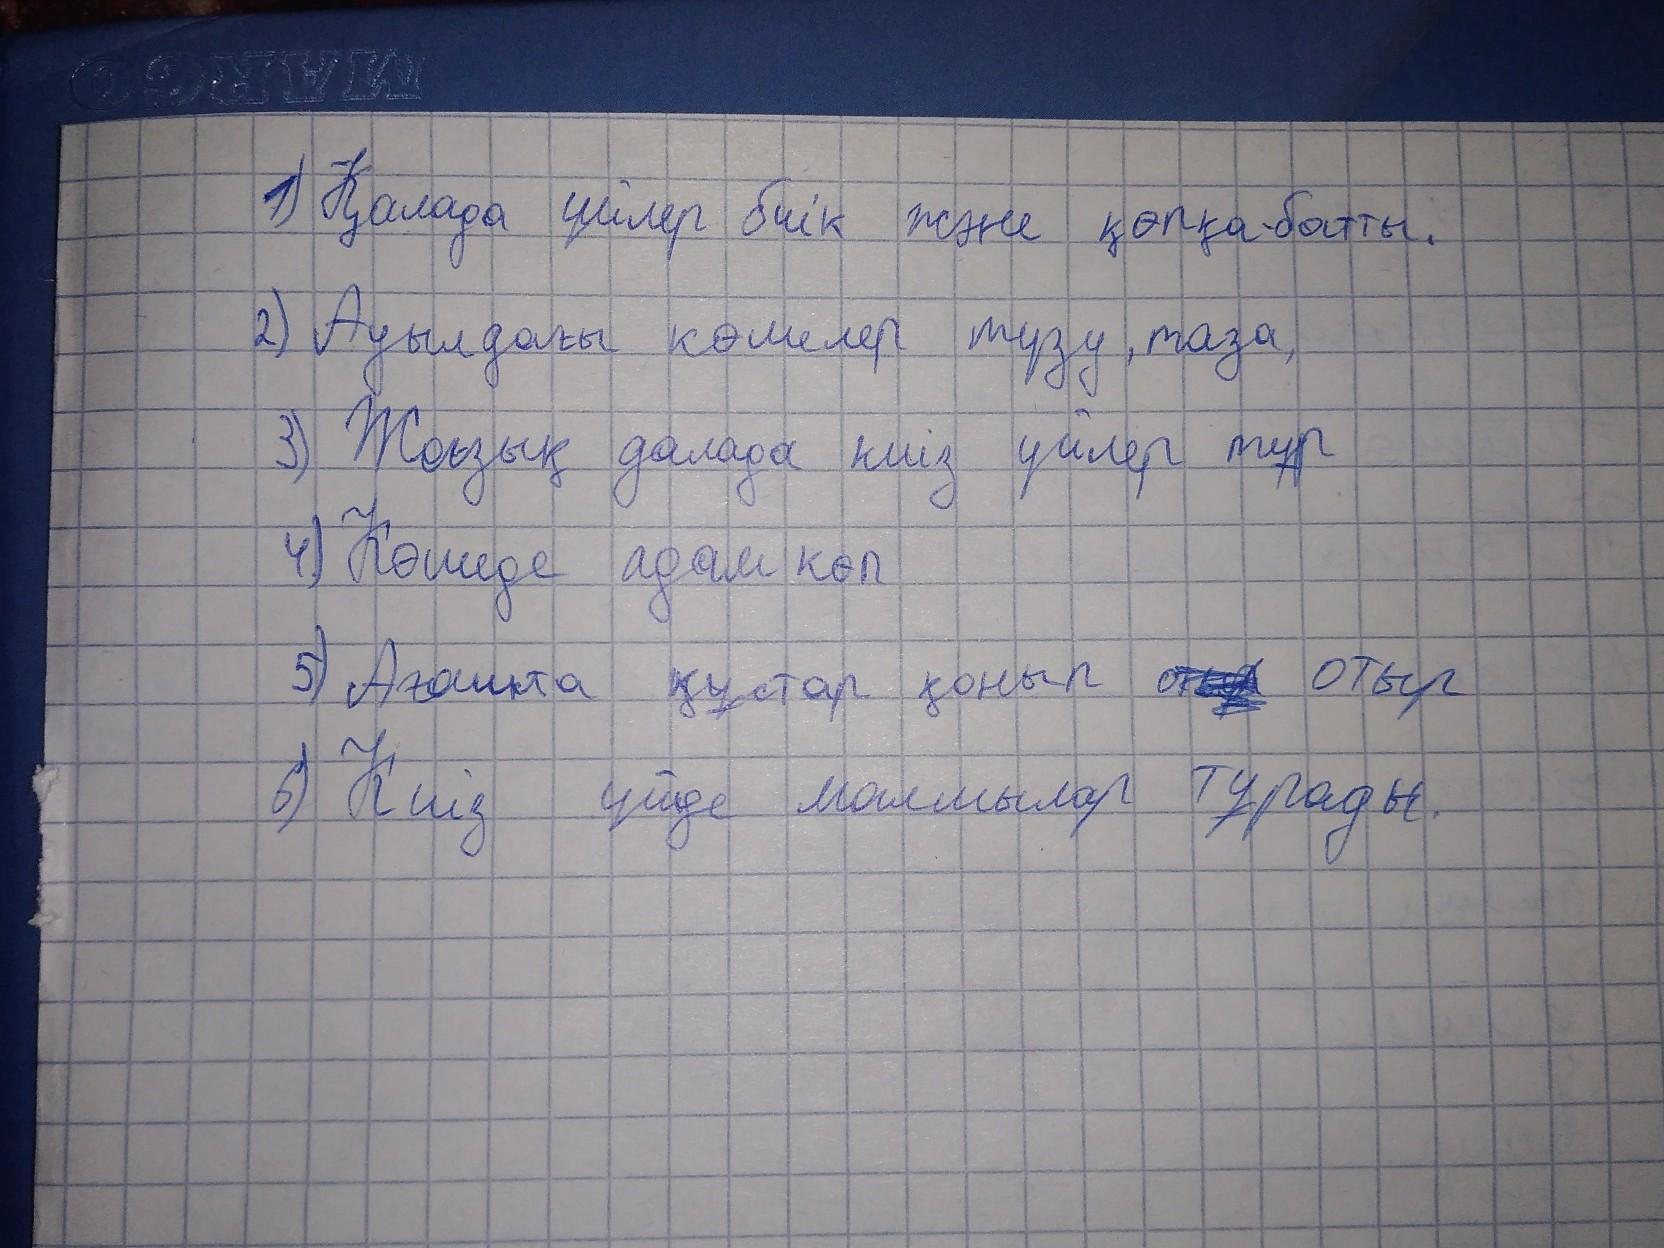 MARGO
1) Қалада үйлер биік және қөпқа-батты.
2) Ауылдағы көшелер түзу, таза,
3) Жазық далада киіз үйлер тұр
4) Көшеде адам көп
5) Ағашта құстар қонып отыр
6) Киіз үйде малшылар тұрады.